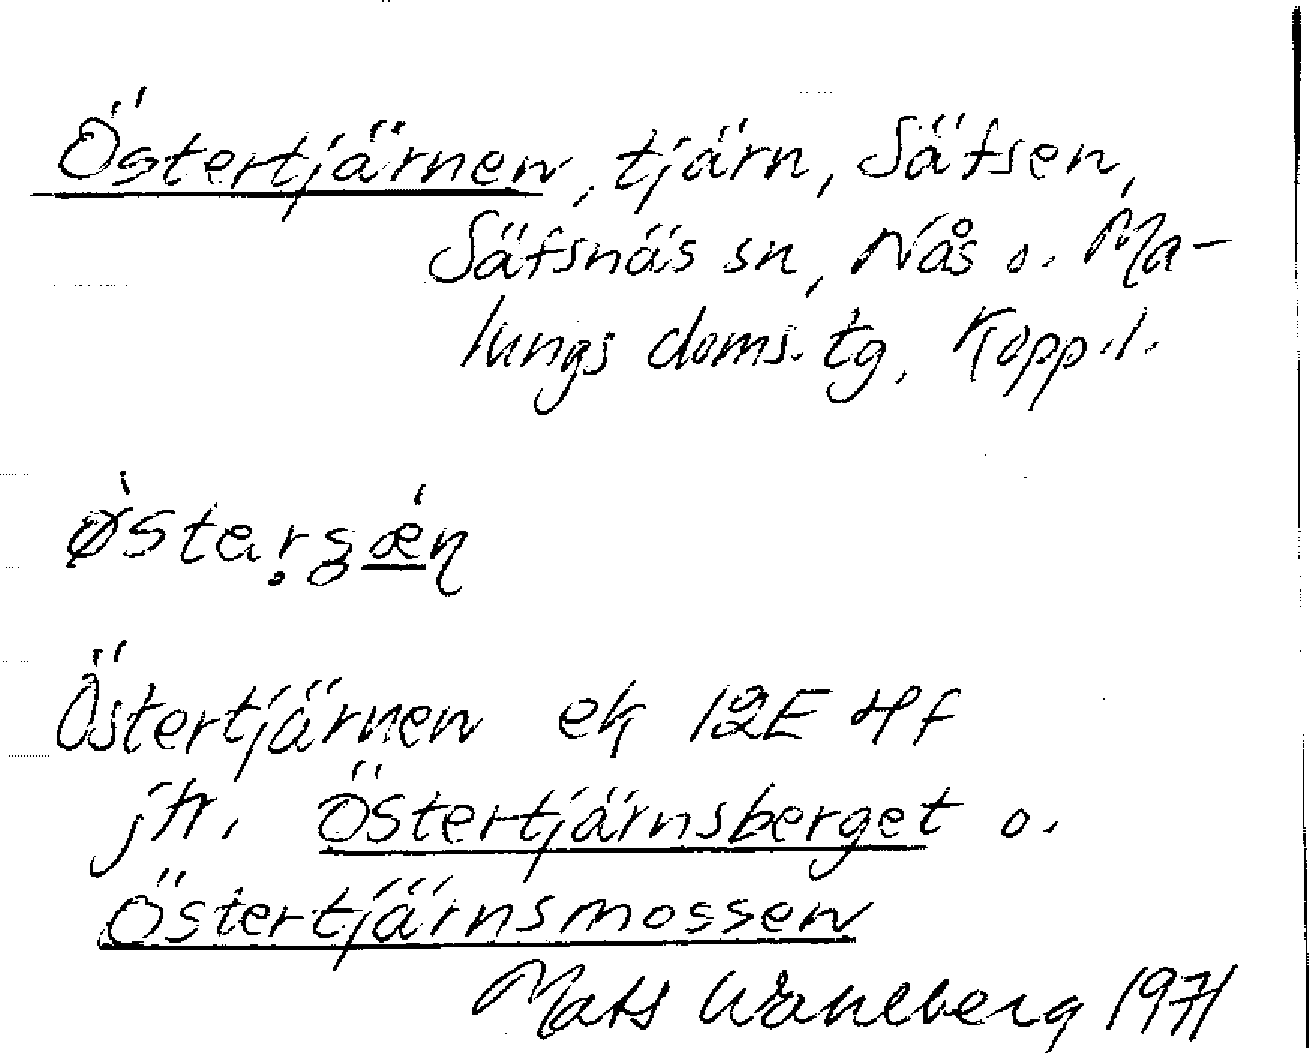 Östertjärnen, tjärn, Säfsen,
Säfsnäs sn, Nås o. Ma-
lungs doms. tg, Kopp.l.
Östertjärnen ek 12E 4f
jfr. Östertjärnsberget o.
Östertjärnsmossen
Mats Wahlberg 1971